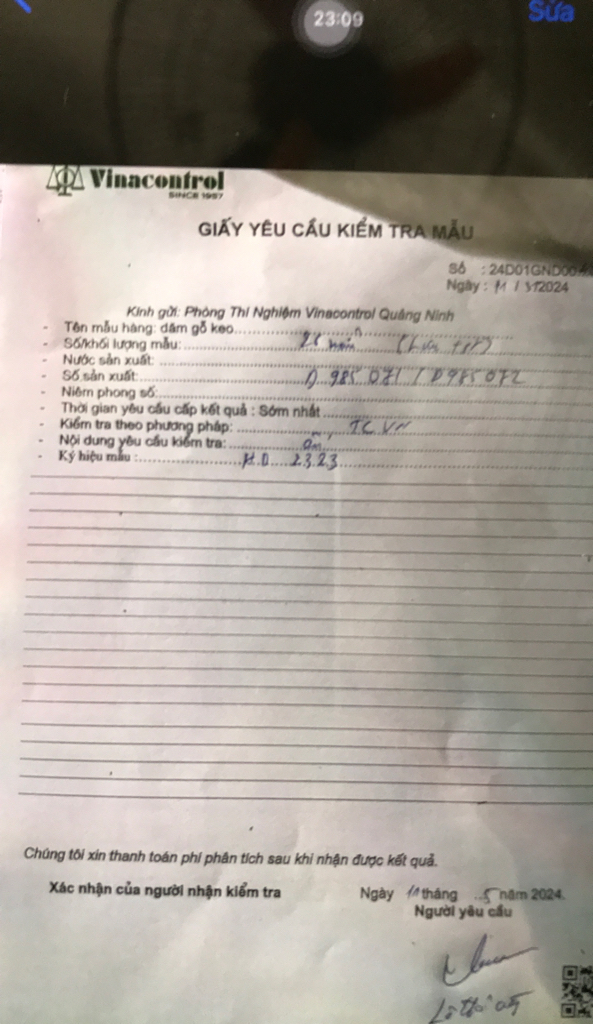 23:09
Sửa
Vinacontrol
SINCE 1957
GIẤY YÊU CẦU KIỂM TRA MẪU
Số : 24D01GND00
Ngày : 11 / 5/2024
Kính gửi: Phòng Thí Nghiệm Vinacontrol Quảng Ninh
- Tên mẫu hàng: dăm gỗ keo
- Số/khối lượng mẫu: 25
- Nước sản xuất:
- Số sản xuất: D 985 071 / D985 072
- Niêm phong số:
- Thời gian yêu cầu cấp kết quả : Sớm nhất
- Kiểm tra theo phương pháp: TC VN
- Nội dung yêu cầu kiểm tra: ẩm
- Ký hiệu mẫu : H.D 2323
Chúng tôi xin thanh toán phí phân tích sau khi nhận được kết quả.
Xác nhận của người nhận kiểm tra
Ngày 11 tháng 5 năm 2024.
Người yêu cầu